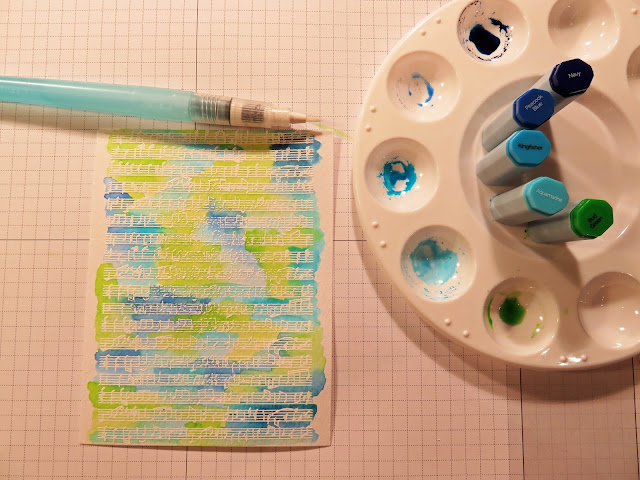 Navy
Peacock
Blue
Kingfisher
Aquamarine